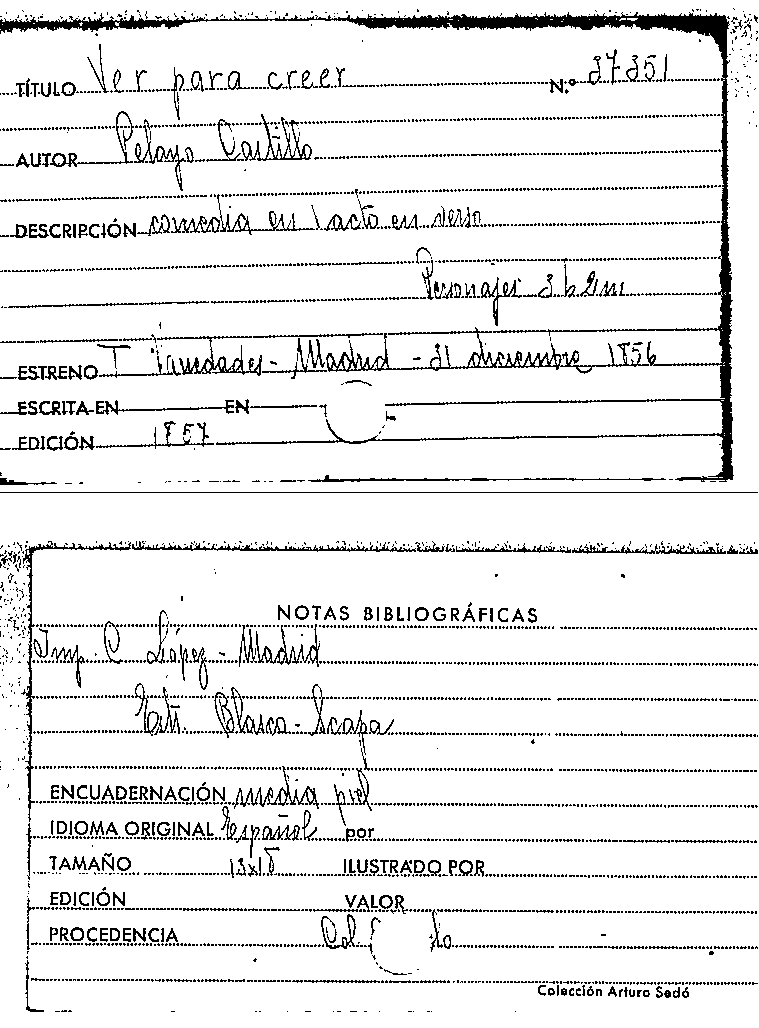 TÍTULO Ver para creer N.º 37351
AUTOR Pelayo Castillo
DESCRIPCIÓN comedia en 1 acto en verso
Personajes 3 h 2 m
ESTRENO T Variedades - Madrid - 31 diciembre 1856
ESCRITA EN EN
EDICIÓN 1857
NOTAS BIBLIOGRÁFICAS
Imp. C. López - Madrid
Blasco - Scapa
ENCUADERNACIÓN media piel
IDIOMA ORIGINAL Español por
TAMAÑO ILUSTRADO POR
EDICIÓN VALOR
PROCEDENCIA Col
Colección Arturo Sedó